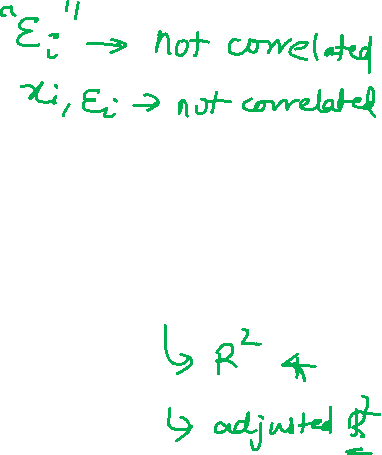 "εi" → not correlated
xi, εi → not correlated
↳ R²
↳ adjusted R²